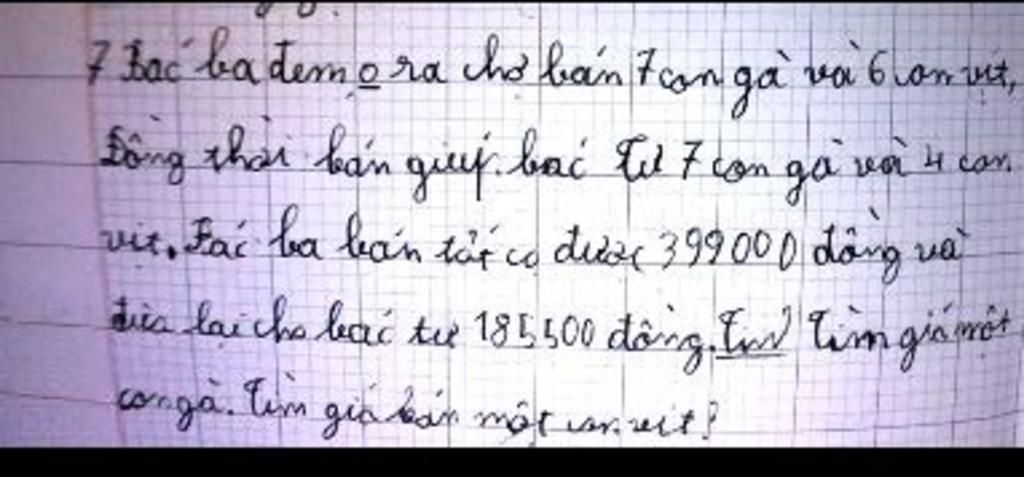 7 Bác ba đem ra chợ bán 7 con gà và 6 con vịt,
Đồng thời bán giúp bác Tư 7 con gà và 4 con
vịt. Bác ba bán tất cả được 399000 đồng và
đưa lại cho bác tư 185500 đồng. Tìm giá một
con gà. Tìm giá bán một con vịt?